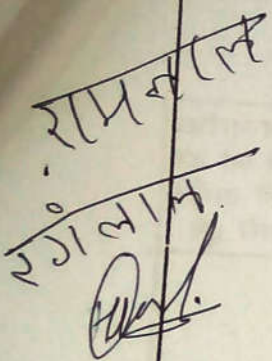 रामलाल
रंगलाल